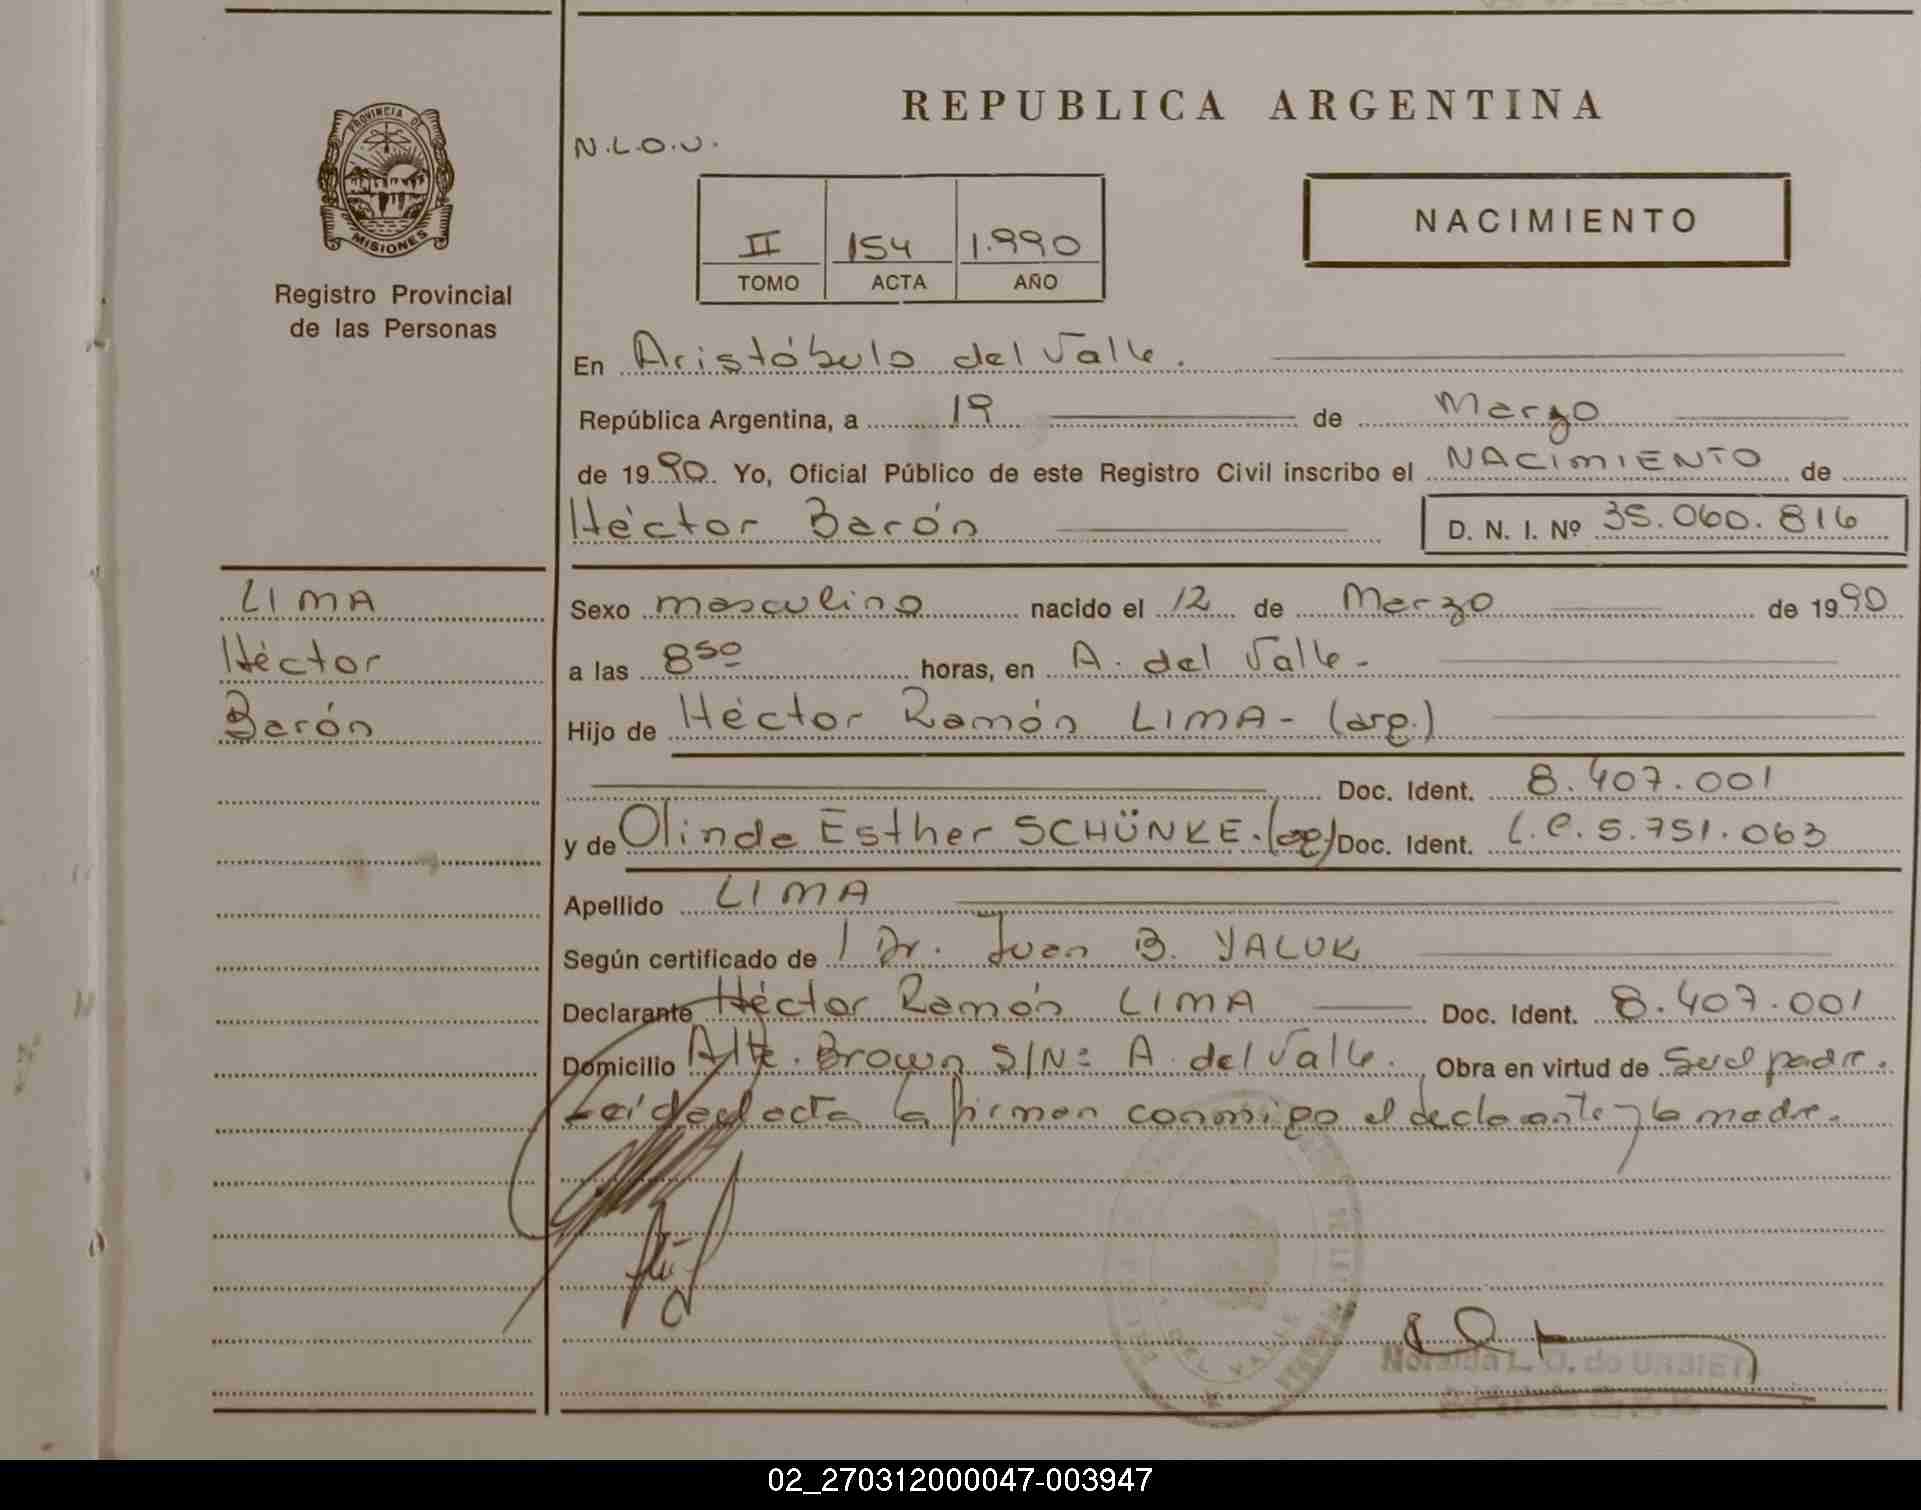 PROVINCIA DE
MISIONES
Registro Provincial
de las Personas
REPUBLICA ARGENTINA
N.L.O.U.
II 154 1.990
TOMO ACTA AÑO
NACIMIENTO
En Aristóbulo del Valle.
República Argentina, a 19 de Marzo
de 1990. Yo, Oficial Público de este Registro Civil inscribo el NACIMIENTO de
Héctor Barón D. N. I. Nº 35.060.816
LIMA
Héctor
Barón
Sexo masculino nacido el 12 de Marzo de 1990
a las 8 50 horas, en A. del Valle.-
Hijo de Héctor Ramón LIMA - (arg.)
Doc. Ident. 8.407.001
y de Olinda Esther SCHÜNKE.(arg) Doc. Ident. L.C. 5.751.063
Apellido LIMA
Según certificado de Dr. Juan B. YALUK
Declarante Héctor Ramón LIMA Doc. Ident. 8.407.001
Domicilio Alte. Brown S/Nº A. del Valle. Obra en virtud de ser el padre.
Leída el acta la firman conmigo el declarante y la madre.
DEL VALLE
L. O. de URBIETA
02_270312000047-003947